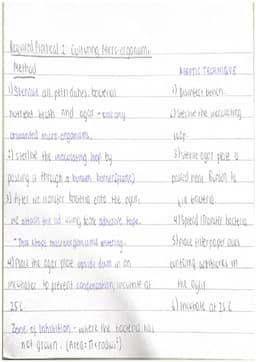 Required Practical 2: Culturing Micro-organisms
Method
1) Sterilise all petri dishes, bacterial
nutrient broth and agar - kill any
unwanted micro-organisms.
2) sterilise the inoculating loop by
passing it through a bunsen burner (flame)
3) After we transfer bacteria onto the agar,
we attach the lid using some adhesive tape.
- This stops microorganisms entering.
4) Place the agar plate upside down in an
incubator to prevent condensation, incubate at
25°C
Zone of Inhibition - where the bacteria has
not grown. (Area = π x radius²)
ASEPTIC TECHNIQUE
1) Disinfect bench.
2) Sterilise the inoculating
loop.
3) sterile agar plate is
placed near Bunsen to
bacteria
4) Spread / transfer bacteria
5) place filter paper discs
in
the agar
6) Incubate at 25°C